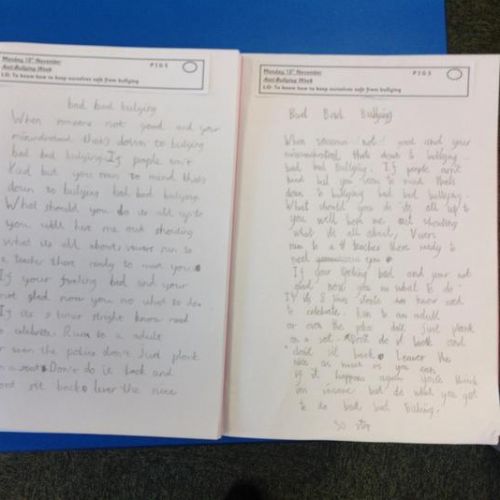 Monday 15th November
Anti-Bullying Week
P I G S
LO: To know how to keep ourselves safe from bullying
bad bad bullying
When someone not good and your
misunderstood thats down to bullying
bad bad bullying. If people aren't
Kind but you to mind thats
down to bullying bad bad bullying
What should you do its all up to
you will here me out shouting
what its all about, run to
a teacher there ready to meet you
If your feeling bad and your
not glad now you no what to do
If its a know need
to celebrate. Run to a adult
or even the police don't Just plonk
on a seat Don't do it back and
dont sit back lever the
Monday 15th November
Anti-Bullying Week
P I G S
LO: To know how to keep ourselves safe from bullying
Bad Bad Bullying
When someone not good and your
misunderstood thats down to bullying
bad bad bullying. If people arnt
kind but you to mind thats
down to bullying bad bad bullying.
What should you do its all up to
you will here me out shouting
what its all about,
run to a teacher there ready to
meet you
If your feeling bad and your not
glad now you no what to do
If its a know need
to celebrate. Run to an adult
or even the police don't just plonk
on a seat. Dont do it back and
dont sit back. Leaver the
as much as you can
if it happens again youll think
but do what you got
to do bad bad bullying.
so stop